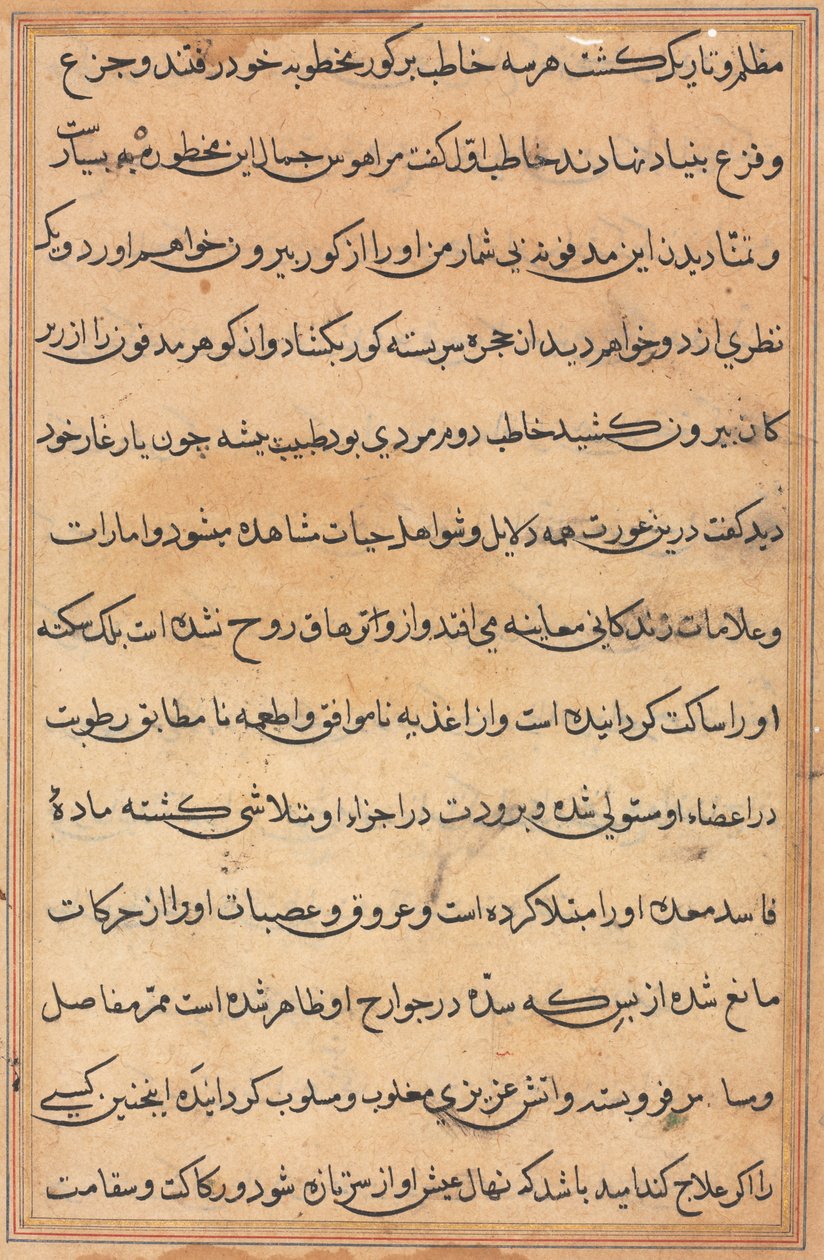 مظلم و تاریک کشت هر سه خاطب بر کور مخطوبه خود رفتند و جزع
و فزع بنیاد نهادند خاطب اوّل کفت مرا هوس جمال این مخطوبه به بسیارست
و تمنّا دیدن این مدفونه بی شمار من او را از کور بیرون خواهم اورد و یک
نظری از دور خواهم دید ان حجره سربسته کور بکشاد و ان کوهر مدفون را از زیر
کان بیرون کشید خاطب دوم مردی بود طبیب پیشه چون یار غار خود
دید کفت درین عورت همه دلایل و شواهد حیات مشاهده میشود و امارات
و علامات زندکانی معاینه می افتد و از و انزهاق روح نشده است بلک سکته
او را ساکت کردانیده است و از اغذیه ناموافق و اطعمه نا مطابق رطوبت
در اعضاء او مستولی شده و برودت در اجزاء او متلاشی کشته مادهٔ
فاسد معده او را مبتلا کرده است و عروق و عصبات او را از حرکات
مانع شده از بسِ که سدّه در جوارح او ظاهر شده است ممرّ مفاصل
و مسا مر فرو بسته و اتش عزیزی مغلوب و مسلوب کردانیَده اینجنین کسی
را اکر علاج کند امید باشد که نهال عیش او از سر تازه شود و رکاکت و سقامت